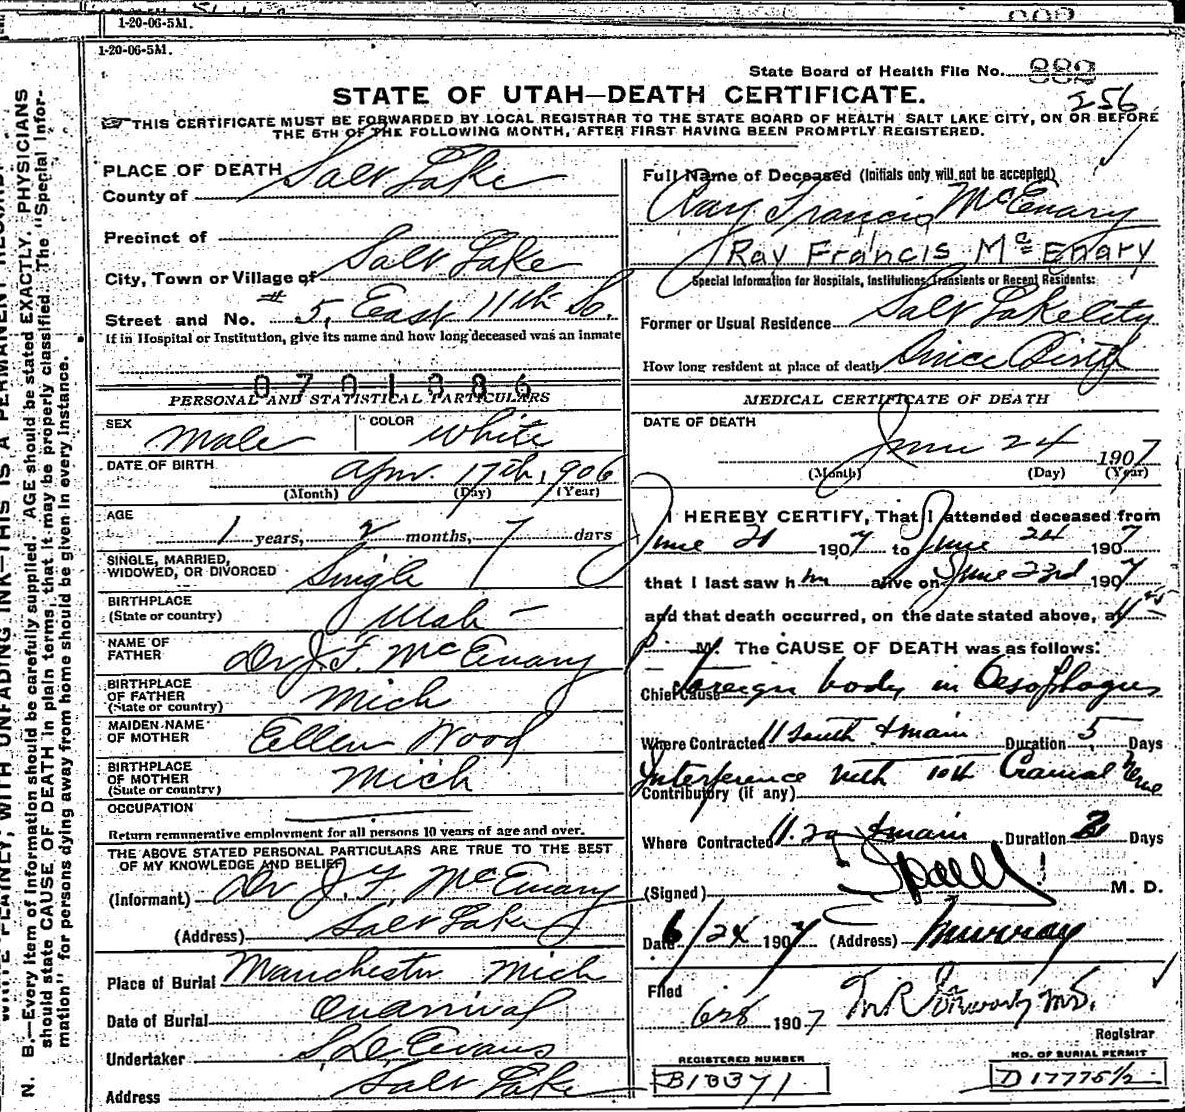 1-20-06-5M.
1-20-06-5M.
State Board of Health File No. 882
256
STATE OF UTAH—DEATH CERTIFICATE.
THIS CERTIFICATE MUST BE FORWARDED BY LOCAL REGISTRAR TO THE STATE BOARD OF HEALTH SALT LAKE CITY, ON OR BEFORE
THE 5TH OF THE FOLLOWING MONTH, AFTER FIRST HAVING BEEN PROMPTLY REGISTERED.
N. B.—Every item of information should be carefully supplied. AGE should be stated EXACTLY. PHYSICIANS
should state CAUSE OF DEATH in plain terms, that it may be properly classified. The "Special Infor-
mation" for persons dying away from home should be given in every instance.
PLACE OF DEATH
County of Salt Lake
Precinct of
City, Town or Village of Salt Lake
Street and No. # 5, East 11th So.
If in Hospital or Institution, give its name and how long deceased was an inmate
0701386
PERSONAL AND STATISTICAL PARTICULARS
SEX Male COLOR White
DATE OF BIRTH Apr. 17th, 1906
(Month) (Day) (Year)
AGE
1 years, 2 months, 7 days
SINGLE, MARRIED,
WIDOWED, OR DIVORCED Single
BIRTHPLACE
(State or country) Utah
NAME OF
FATHER Dr J. F. McEnary
BIRTHPLACE
OF FATHER
(State or country) Mich
MAIDEN NAME
OF MOTHER Ellen Wood
BIRTHPLACE
OF MOTHER
(State or country) Mich
OCCUPATION
Return remunerative employment for all persons 10 years of age and over.
THE ABOVE STATED PERSONAL PARTICULARS ARE TRUE TO THE BEST
OF MY KNOWLEDGE AND BELIEF
(Informant) Dr J. F. McEnary
(Address) Salt Lake
Place of Burial Manchester Mich
Date of Burial On arrival
Undertaker S. D. Evans
Address Salt Lake
Full Name of Deceased (Initials only will not be accepted)
Ray Francis McEnary
Ray Francis McEnary
Special Information for Hospitals, Institutions, Transients or Recent Residents:
Former or Usual Residence Salt Lake City
How long resident at place of death Since Birth
MEDICAL CERTIFICATE OF DEATH
DATE OF DEATH
June 24 1907
(Month) (Day) (Year)
I HEREBY CERTIFY, That I attended deceased from
June 21 1907 to June 24 1907
that I last saw him alive on June 23rd 1907
and that death occurred, on the date stated above, at 11
P. M. The CAUSE OF DEATH was as follows:
Chief Cause Foreign body in Oesophagus
Where Contracted 11 South & Main Duration 5 Days
Interference with 10th Cranial Nerve
Contributory (if any)
Where Contracted 11. & Main Duration 2 Days
(Signed) M. D.
Date 6/24 1907 (Address) Murray
Filed
6-28 1907
Registrar
REGISTERED NUMBER
B10371
NO. OF BURIAL PERMIT
D17775½